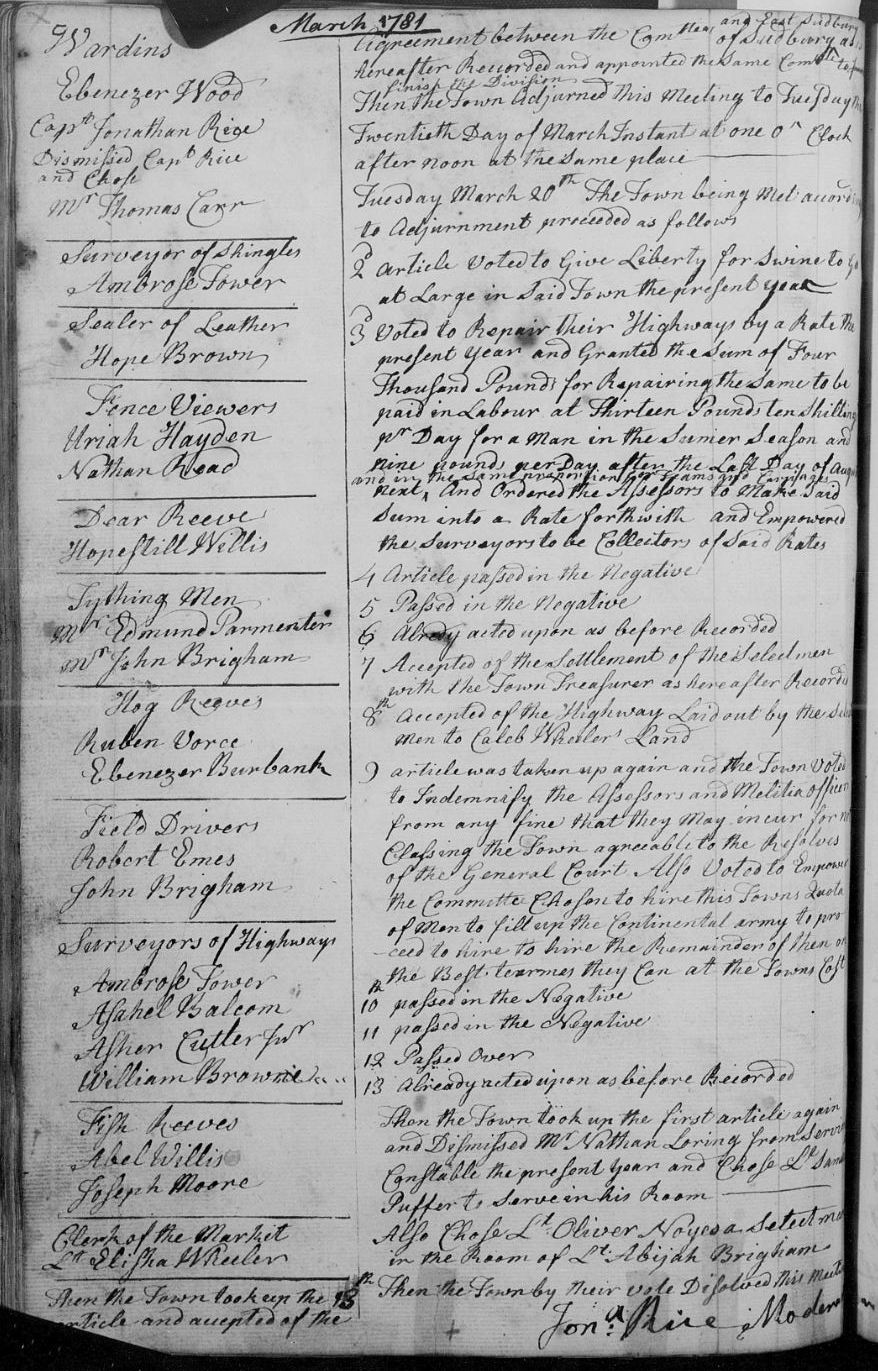 March 1781
Wardins
Ebenezer Wood
Capt Jonathan Rice
Dismissed Capt Rice
and Chose
Mr Thomas Carr
Surveyor of Shingles
Ambrose Tower
Sealer of Leather
Hope Brown
Fence Viewers
Uriah Hayden
Nathan Read
Dear Reeve
Hopestill Willis
Tything Men
Mr Edmund Parmenter
Mr John Brigham
Hog Reeves
Ruben Vorce
Ebenezer Burbank
Field Drivers
Robert Emes
John Brigham
Surveyors of Highways
Ambrose Tower
Asahel Balcom
Asher Cutler Junr
William Browne
Fish Reeves
Abel Willis
Joseph Moore
Clerk of the Market
Lt Elisha Wheeler
Then the Town took up the 13th
article and accepted of the
and East Sudbury
Agreement between the Comttees of Sudbury as is
hereafter Recorded and appointed the same Comtte to
finish the Division
Then the Town Adjurned this Meeting to Tuesday the
Twentieth Day of March Instant at one On Clock
after noon at the same place
Tuesday March 20th The Town being Met accordin
to Adjurnment proceeded as follows
2d Article Voted to Give Liberty for Swine to Go
at Large in Said Town the present year
3d Voted to Repair their Highways by a Rate the
present year and Granted the Sum of Four
Thousand Pounds for Repairing the Same to be
paid in Labour at Thirteen Pounds ten Shillings
pr Day for a Man in the Sumer Season and
nine pounds per Day after the Last Day of August
and in the same proportion for Teams and Carriages
next, And Ordered the Assessors to Make Said
Sum into a Rate forthwith and Empowered
the Surveyors to be Collectors of Said Rates
4 Article passed in the Negative
5 Passed in the Negative
6 Alredy acted upon as before Recorded
7 Accepted of the Settlement of the Selectmen
with the Town Treasurer as hereafter Recorded
8th Accepted of the Highway Laid out by the Select
men to Caleb Wheelers Land
9 article was taken up again and the Town Voted
to Indemnify the Assessors and Melitia officers
from any fine that they may incur for not
Classing the Town agreeable to the Resolves
of the General Court Also Voted to Empower
the Committe Chosen to hire this Towns Quota
of Men to fill up the Continental army to pro
-ceed to hire to hire the Remainder of Them on
the Best tearmes they Can at the Towns Cost
10th passed in the Negative
11 passed in the Negative
12 Passed Over
13 Already acted upon as before Recorded
Then the Town took up the first article again
and Dismissed Mr Nathan Loring from Serving
Constable the present year and Chose Lt Saml
Puffer to Serve in his Room
Also Chose Lt Oliver Noyes a Select man
in the Room of Lt Abijah Brigham
Then the Town by their vote Disolved this Meeting
Jona: Rice Moder